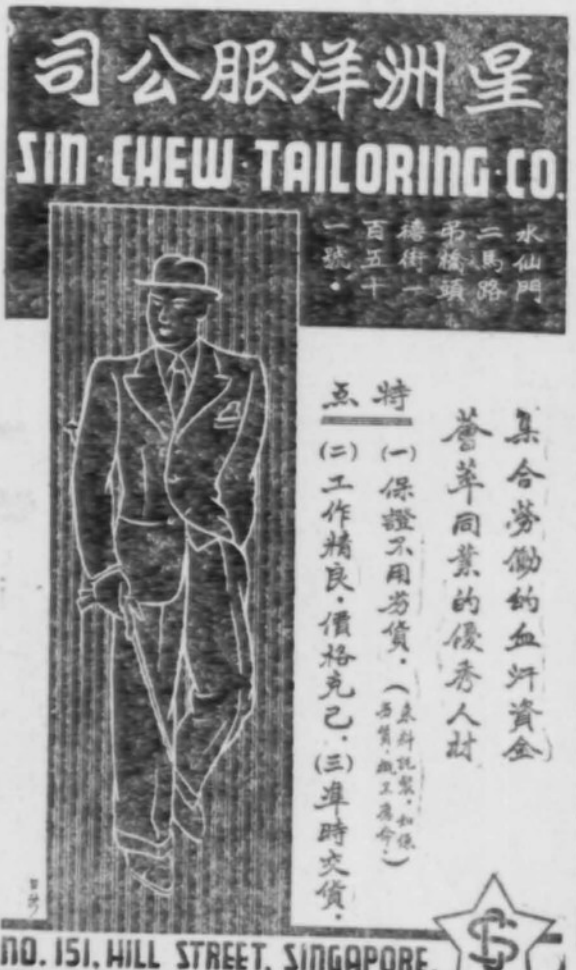 司公服洋洲星
SIN·CHEW·TAILORING·CO.
水仙門
二馬路
吊橋頭
禧街一
百五十
一號。
集合勞働的血汗資金
薈萃同業的優秀人材
特点
(一)保證不用劣貨。
(二)工作精良。價格克己。(三)準時交貨。
NO. 151, HILL STREET, SINGAPORE